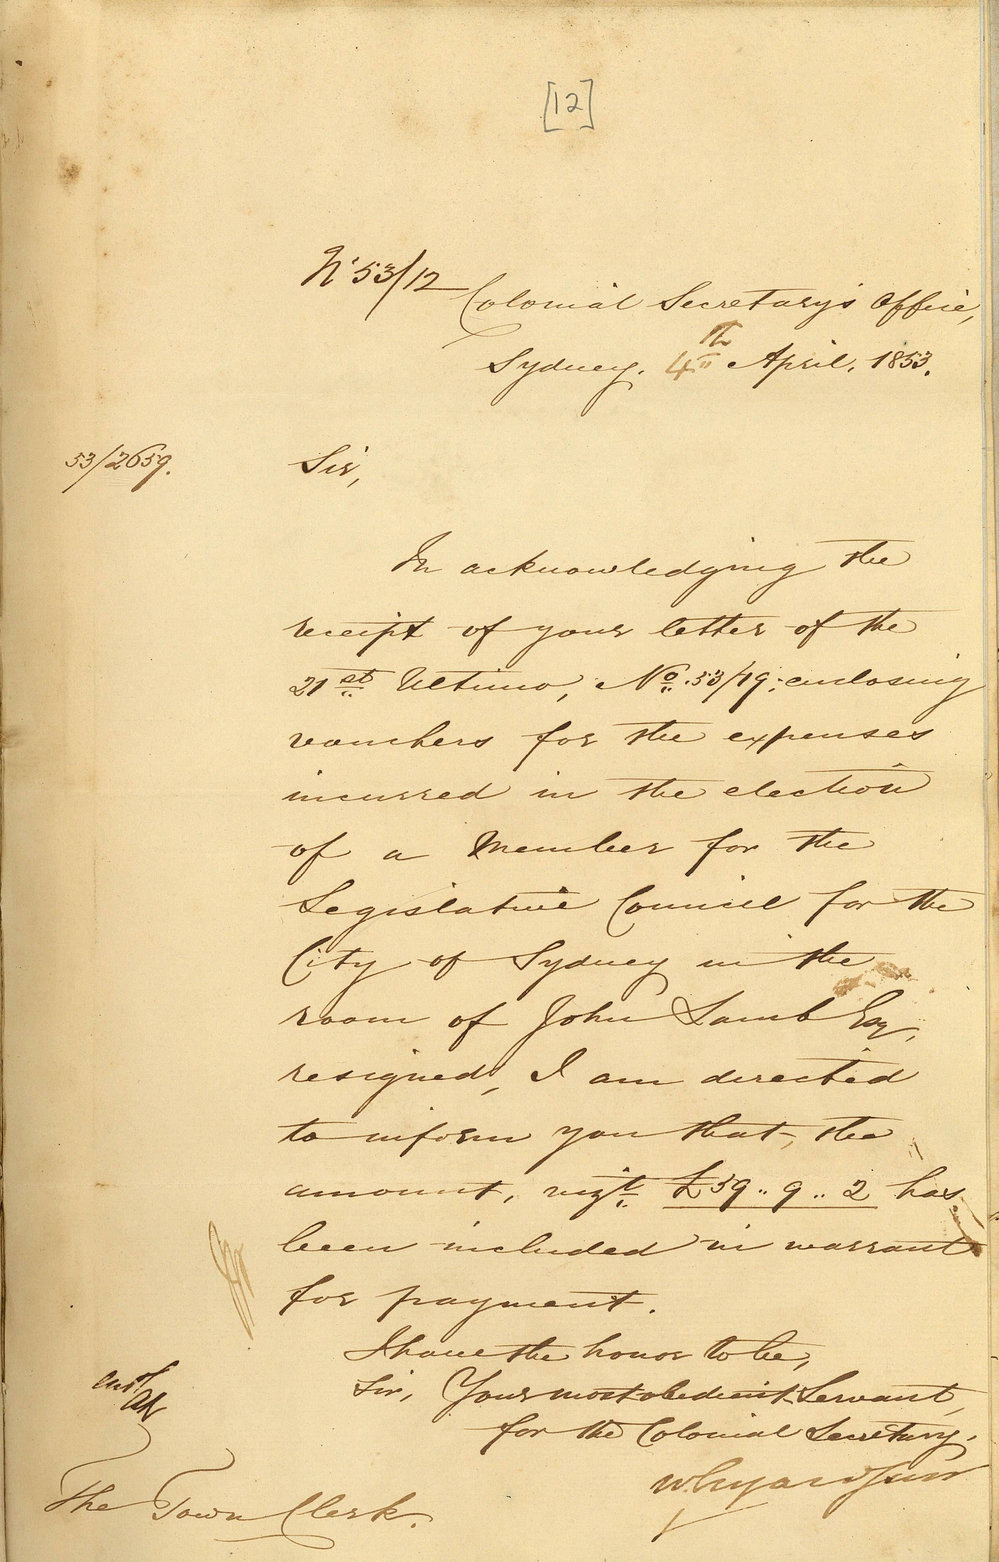 [12]
N° 53/12
Colonial Secretary's Office,
Sydney. 4th April. 1853.
53/2659.
Sir,
In acknowledging the
receipt of your letter of the
21st Ultimo, No. 53/19, enclosing
vouchers for the expenses
incurred in the election
of a Member for the
Legislative Council for the
City of Sydney in the
room of John Lamb Esq,
resigned, I am directed
to inform you that, the
amount, vizt £59..9..2 has
been included in warrant
for payment.
I have the honor to be,
Sir, Your most obedient Servant,
for the Colonial Secretary.
The Town Clerk.